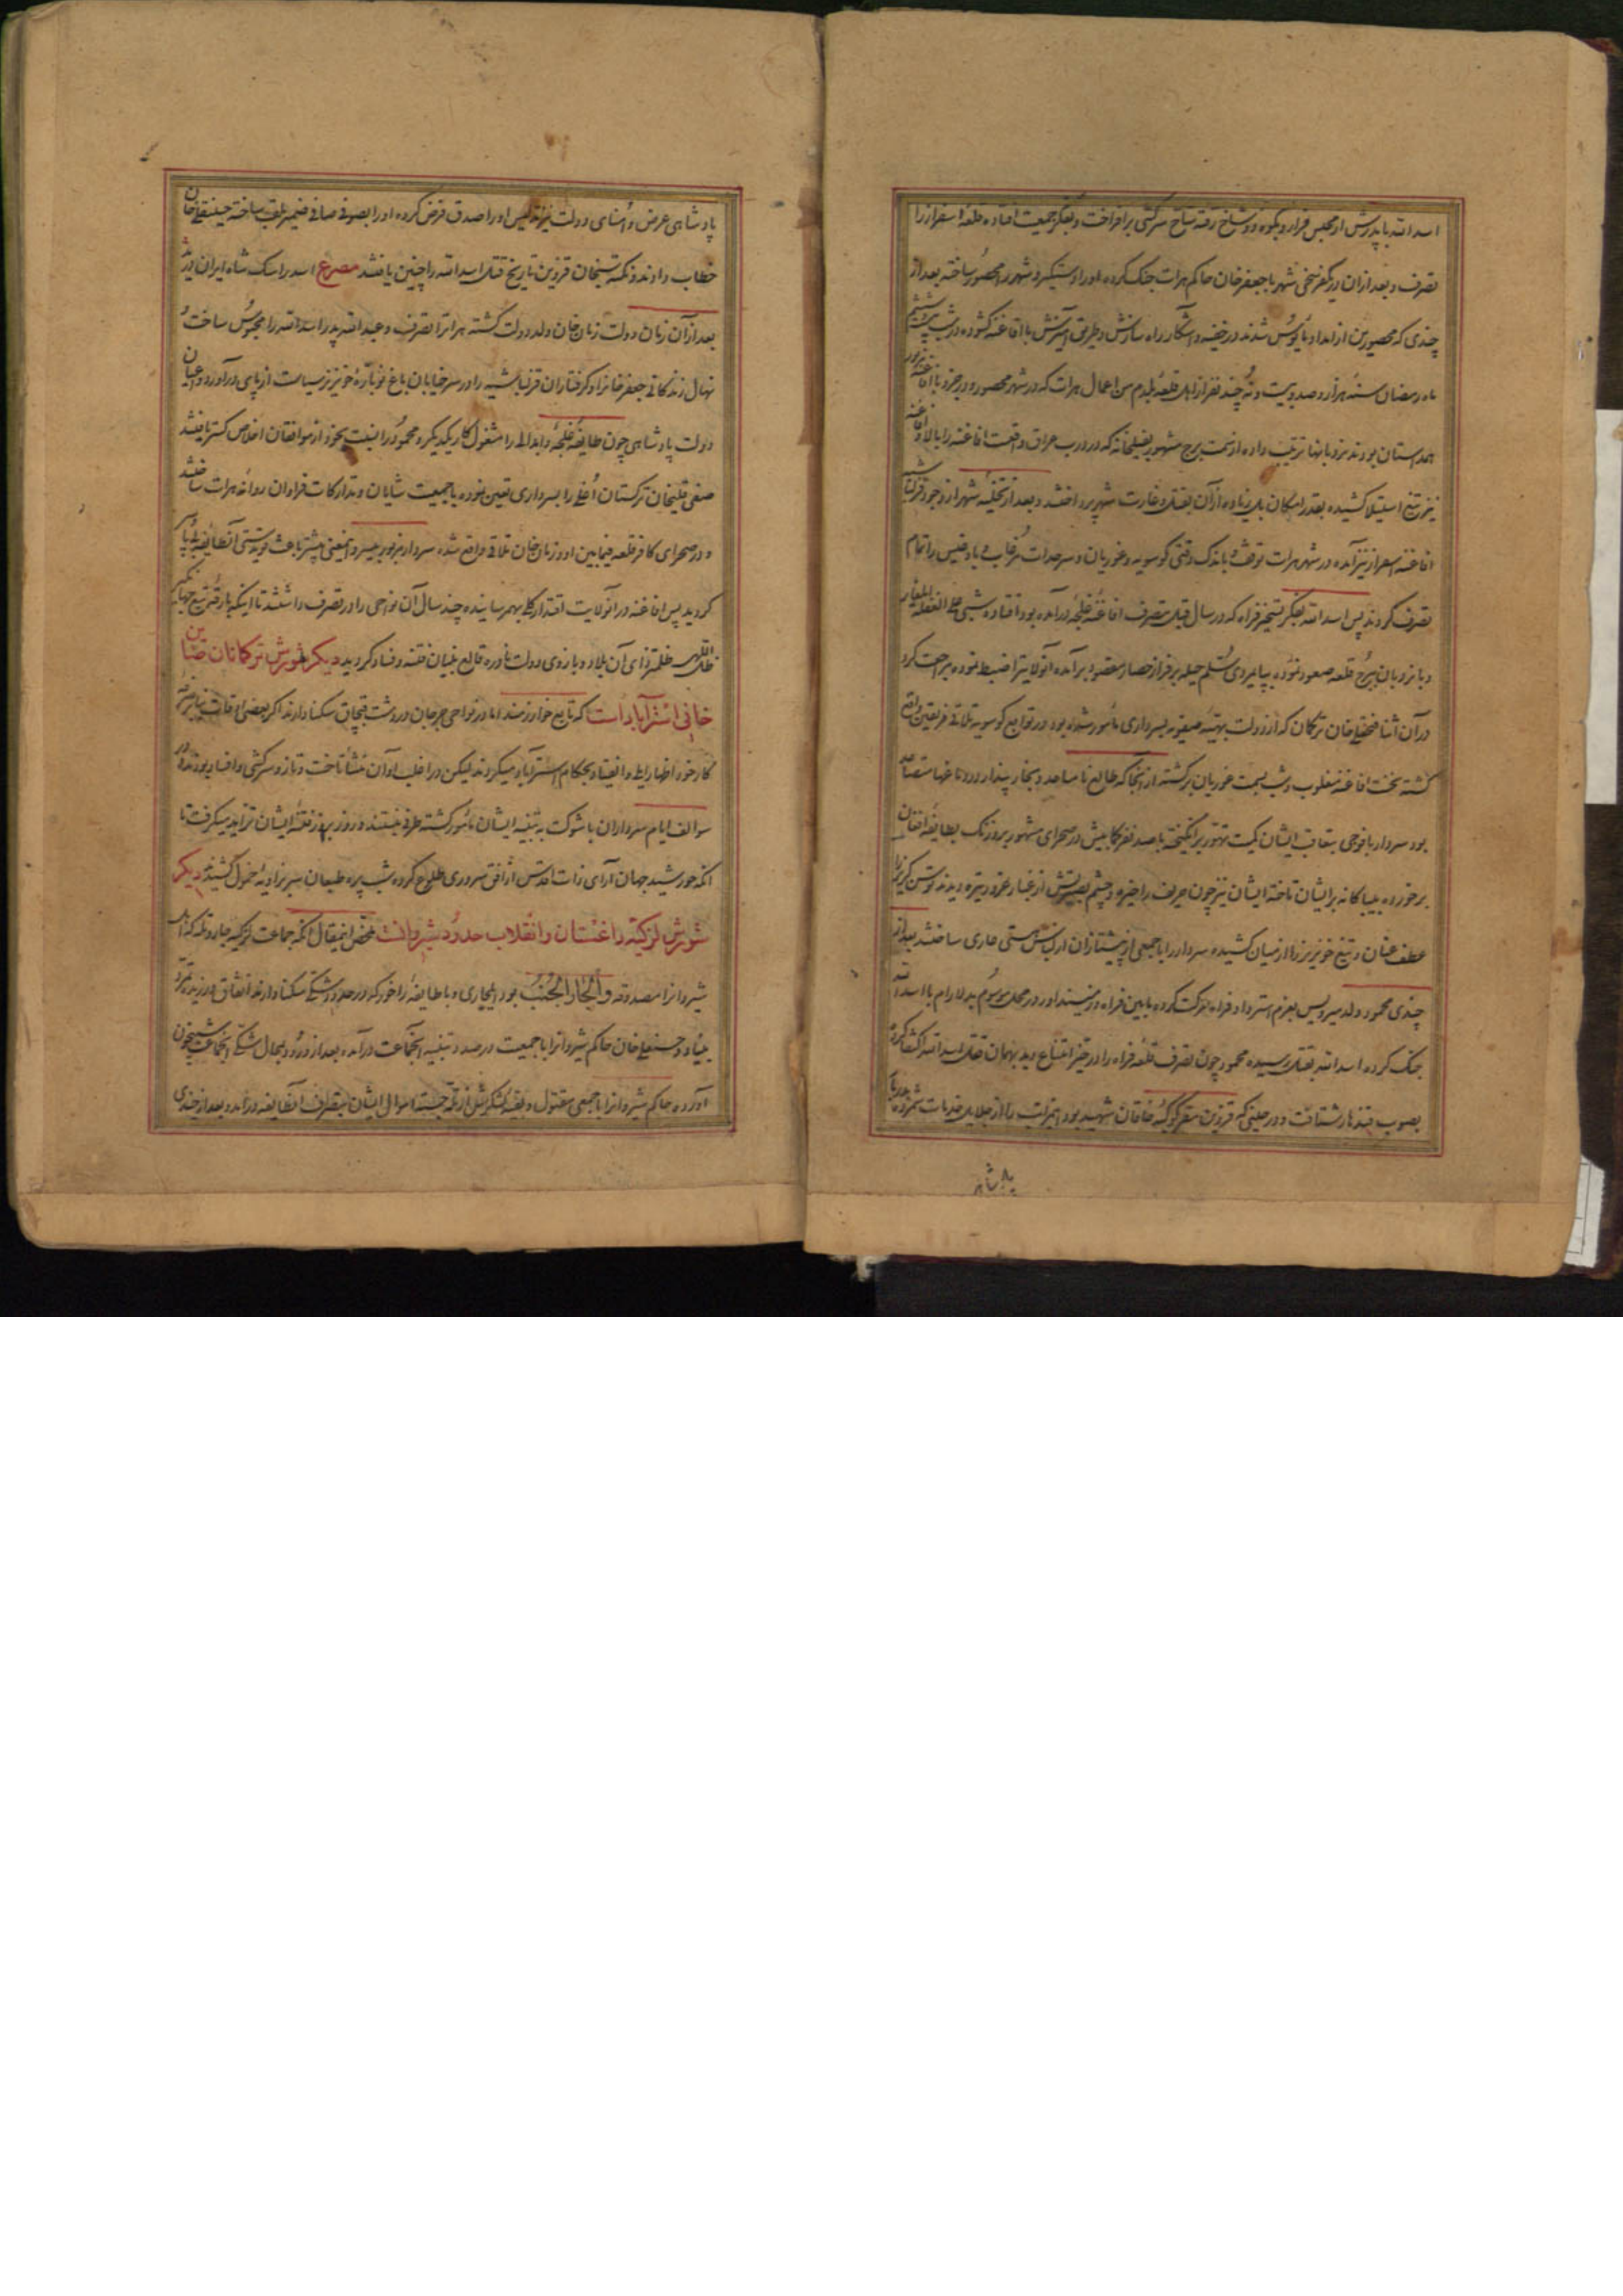 اسد الله با پدرش از محبس فرار و بکوه دو شاخ رفته شاخ سرکشی برافراخت و بفکر جمعیت افتاده قلعه اسفزار را
تصرف و بعد از ان در یکفرسخی شهر با جعفر خان حاکم هرات جنک کرده او را دستیکیر و شهر را محصور ساخته بعد از
چندی که محصورین از امداد مأیوس شدند در خفیه و آشکار راه سازش و طریق آمیزش با افاغنه کشوده در شب بیست و ششم
ماه رمضان سنهٔ هزار و صد و بیست و نه چند نفر از اهل قلعهٔ من اعمال هرات که در شهر محصور و در با افاغنهٔ مزبور
همداستان بودند نردبانها ترتیب داده از سمت برج مشهور بفیلخانه که در درب عراق واقعست افاغنه را بالا و افاغنه
نیز تیغ استیلا کشیده بقدر امکان بقتل و غارت شهر پرداختند و بعد از تخلیهٔ شهر از وجود قزلباشیه
افاغنه اسفزار نیز آمده در شهر هرات توقف و باندک وقتی کوسویه و غوریان و سرحدات مرغاب و بادغیس را تمام
تصرف کردند پس اسد الله بفکر تسخیر فراه که در سال قبل بتصرف افاغنهٔ غلجه در آمده بود افتاده شبی علی الغفله ایلغار
و با نردبان ببرج قلعه صعود نموده بپایمردی سُلّم حیله بر فراز حصار مقصود برآمده آنولایت را ضبط نموده مراجعت کرد
در آن اثنا فتحعلیخان ترکمان که از دولت بهیّهٔ صفویه بسرداری مأمور شده بود در توابع کوسویه تلاقی فریقین واقع
کشته نخست افاغنه مغلوب و شب بسمت غوریان برکشته از آنجا که طالع نامساعد و بخار پندار در دماغها متصاعد
بود سردار با فوجی بتعاقب ایشان کمیت تهوّر برانکیخته با صد نفر کمابیش در صحرای مشهور بطایفهٔ افغان
برخورده بیباکانه بر ایشان تاخته ایشان نیز چون حریف را خیره و چشم بصیرتش از غبار غرور تیره دیدند توسن کریز را
عطف عنان و تیغ خونریز را از میان کشیده سردار را با جمعی از پیشتازان از لباس هستی عاری ساختند بعد از
چندی محمود ولد میرویس بعزم استرداد فراه حرکت کرده مابین فراه و زمینداور در محل موسوم بدلارام با اسد الله
جنک کرده اسد الله بقتل رسیده محمود چون تصرف قلعهٔ فراه را در حیّز امتناع دید بهمان قتل اسد الله اکتفا کرده
بصوب قندهار شتافت و در حینی که قزوین مقر کوکبهٔ خاقان شهید بود اینمراتب را از جلایل خدمات شمرده بدربار
پادشاهی
پادشاهی عرض و اُمنای دولت نیز تدلیس او را صدق فرض کرده او را بصوفی صافی ضمیر ملقب ساخته حسینقلیخان
خطاب دادند و نکته سنجان قزوین تاریخ قتل اسد الله را چنین یافتند مصرع اسد را سک شاه ایران درید
بعد از آن زمان دولت زمان خان ولد دولت کشته هراترا تصرف و عبد الله پدر اسد الله را محبوس ساخت
نهال زندکانی جعفر خانرا و کرفتاران قزلباشیه را در سر خیابان باغ نو باَرّهٔ خونریز سیاست از پای درآورد و اعیان
دولت پادشاهی چون طایفهٔ غلجه و ابدالی را مشغول کار یکدیکر و محمود را نسبت بخود از موافقان اخلاص کستر یافتند
صفی قلیخان ترکستان اُغلی را بسرداری تعیین نموده با جمعیت شایان و تدارکات فراوان روانهٔ هرات ساختند
و در صحرای کافر قلعه فیمابین او و زمان خان تلاقی واقع شده سردار مزبور بیسر و اینمعنی بیشتر باعث قویدستی آنطایفهٔ بی پا
کردید پس افاغنه در آنولایت اقتدار کلی بهمرسانیده چند سال آن نواحی را در تصرف داشتند تا اینکه بارقهٔ تیغ جهانگیر
ظل اللهی ظلمت زدای آن بلاد و بازوی دولت نادره قالع بنیان فتنه و فساد کردید دیکر شورش ترکمانان صاین
خانی اِستَرآباد است که تابع خوارزمند اما در نواحی جرجان و دشت قبچاق سکنا دارند اکر بعضی اوقات بنابر
کار خود اظهار ایلی و انقیاد بحکام استرآباد میکردند لیکن در اغلب اوان منشأ تاخت و تاز و سرکشی و افساد بودند و در
سوالف ایام سرداران با شوکت به تنبیه ایشان مأمور کشته طرفی نبستند و روز بروز فتنهٔ ایشان تزاید میکرفت تا
انکه خورشید جهان آرای ذات اقدس از افق سروری طلوع کرده شب پره طبعان سر بزاویهٔ خمول کشیدند دیکر
شورش لزکیّهٔ داغستان و انقلاب حدود شیروانست محض اینمقال انکه جماعت لزکیه جار و تله که اهل
شیروانرا مصدوقه وَالجَارِ الجُنُبْ بود ایلجاری و با طایفهٔ را خور که در حدود شکّی سکنا دارند اتفاق ورزیده تمرّد
بنیاد و حسنعلیخان حاکم شیروانرا با جمعیت در صدد تنبیه آنجماعت درآمده بعد از ورود بمحال شکّی آنجماعت شبیخون
آورده حاکم شیروانرا با جمعی مقتول و بقیه لشکرش از تله جسته اموال ایشان بتصرف آنطایفه درآمد و بعد از چندی